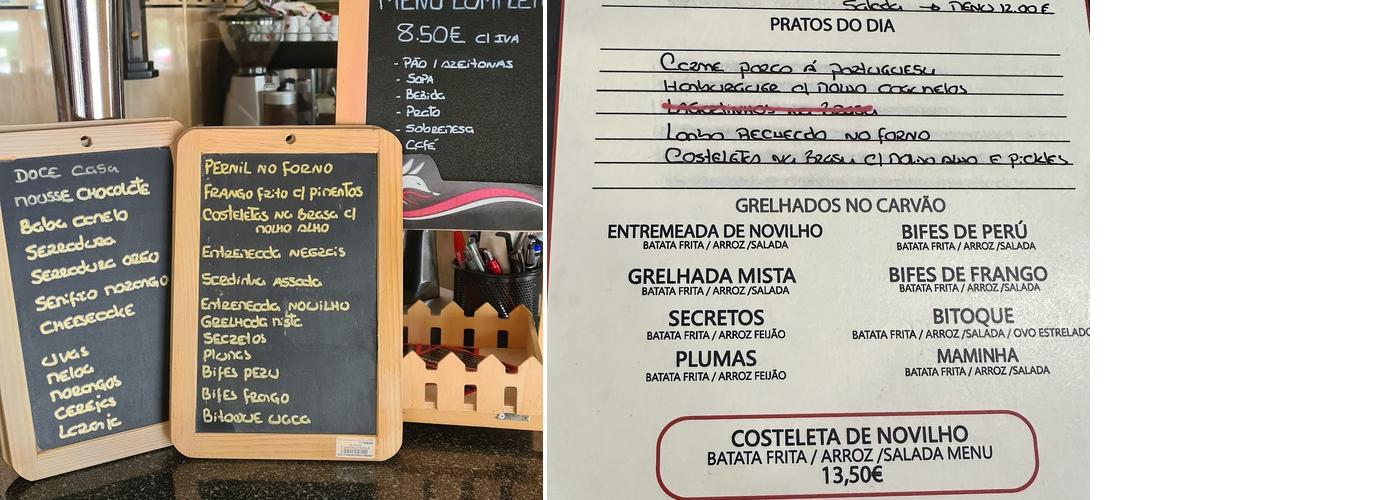 DOCE Casa
MOUSSE CHOCOLATE
Baba camelo
SERRADURA
SERRADURA OREO
SEMIFRIO MORANGO
CHEESECAKE
UVAS
MELOA
MORANGOS
CEREJAS
Laranja
PERNIL NO FORNO
FRANGO frito c/ PIMENTOS
COSTELETAS NA BRASA c/
MOLHO ALHO
Entremeada NEGRAIS
Sardinha Assada
Entremeada NOVILHO
GRELHADA MISTA
SECRETOS
Plumas
Bifes PERU
Bifes FRANGO
BitoQUE VACA
MENU COMPLETO
8.50€ C/ IVA
- PÃO / AZEITONAS
- SOPA
- Bebida
- Prato
- Sobremesa
- CAFÉ
Salada → MENU 12.00 €
PRATOS DO DIA
Carne porco á portuguesa
Hamburguer c/ molho cogumelos
LAGARTINHOS na Brasa
Lombo RECHEADO NO FORNO
Costeletas na Brasa c/ molho ALHO E pickles
GRELHADOS NO CARVÃO
ENTREMEADA DE NOVILHO
BATATA FRITA / ARROZ /SALADA
BIFES DE PERÚ
BATATA FRITA / ARROZ /SALADA
GRELHADA MISTA
BATATA FRITA / ARROZ /SALADA
BIFES DE FRANGO
BATATA FRITA / ARROZ /SALADA
SECRETOS
BATATA FRITA / ARROZ FEIJÃO
BITOQUE
BATATA FRITA / ARROZ /SALADA / OVO ESTRELADO
PLUMAS
BATATA FRITA / ARROZ FEIJÃO
MAMINHA
BATATA FRITA / ARROZ /SALADA
COSTELETA DE NOVILHO
BATATA FRITA / ARROZ /SALADA MENU
13,50€